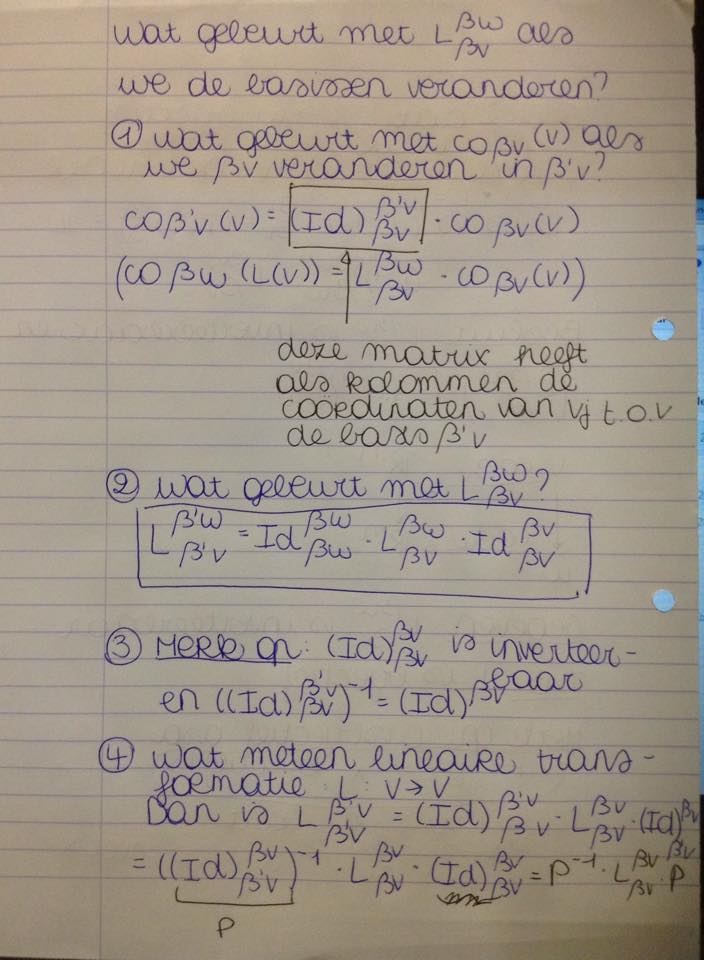 wat gebeurt met L^{βw}_{βv} als
we de basissen veranderen?
① wat gebeurt met co_{βv}(v) als
we βv veranderen in β'v?
co_{β'v}(v) = (Id)^{β'v}_{βv} · co_{βv}(v)
(co_{βw}(L(v)) = L^{βw}_{βv} · co_{βv}(v))
deze matrix heeft
als kolommen de
coördinaten van vj t.o.v
de basis β'v
② wat gebeurt met L^{βw}_{βv}?
L^{β'w}_{β'v} = Id^{βw}_{βw} · L^{βw}_{βv} · Id^{βv}_{βv}
③ MERK op: (Id)^{βv}_{βv} is inverteer-
baar
en ((Id)^{β'v}_{βv})^{-1} = (Id)^{βv}
④ wat met een lineaire trans-
formatie L: V → V
Dan is L^{β'v}_{β'v} = (Id)^{β'v}_{βv} · L^{βv}_{βv} · (Id)^{βv}_{β'v}
= ((Id)^{βv}_{β'v})^{-1} · L^{βv}_{βv} · (Id)^{βv}_{βv} = P^{-1} · L^{βv}_{βv} · P
P